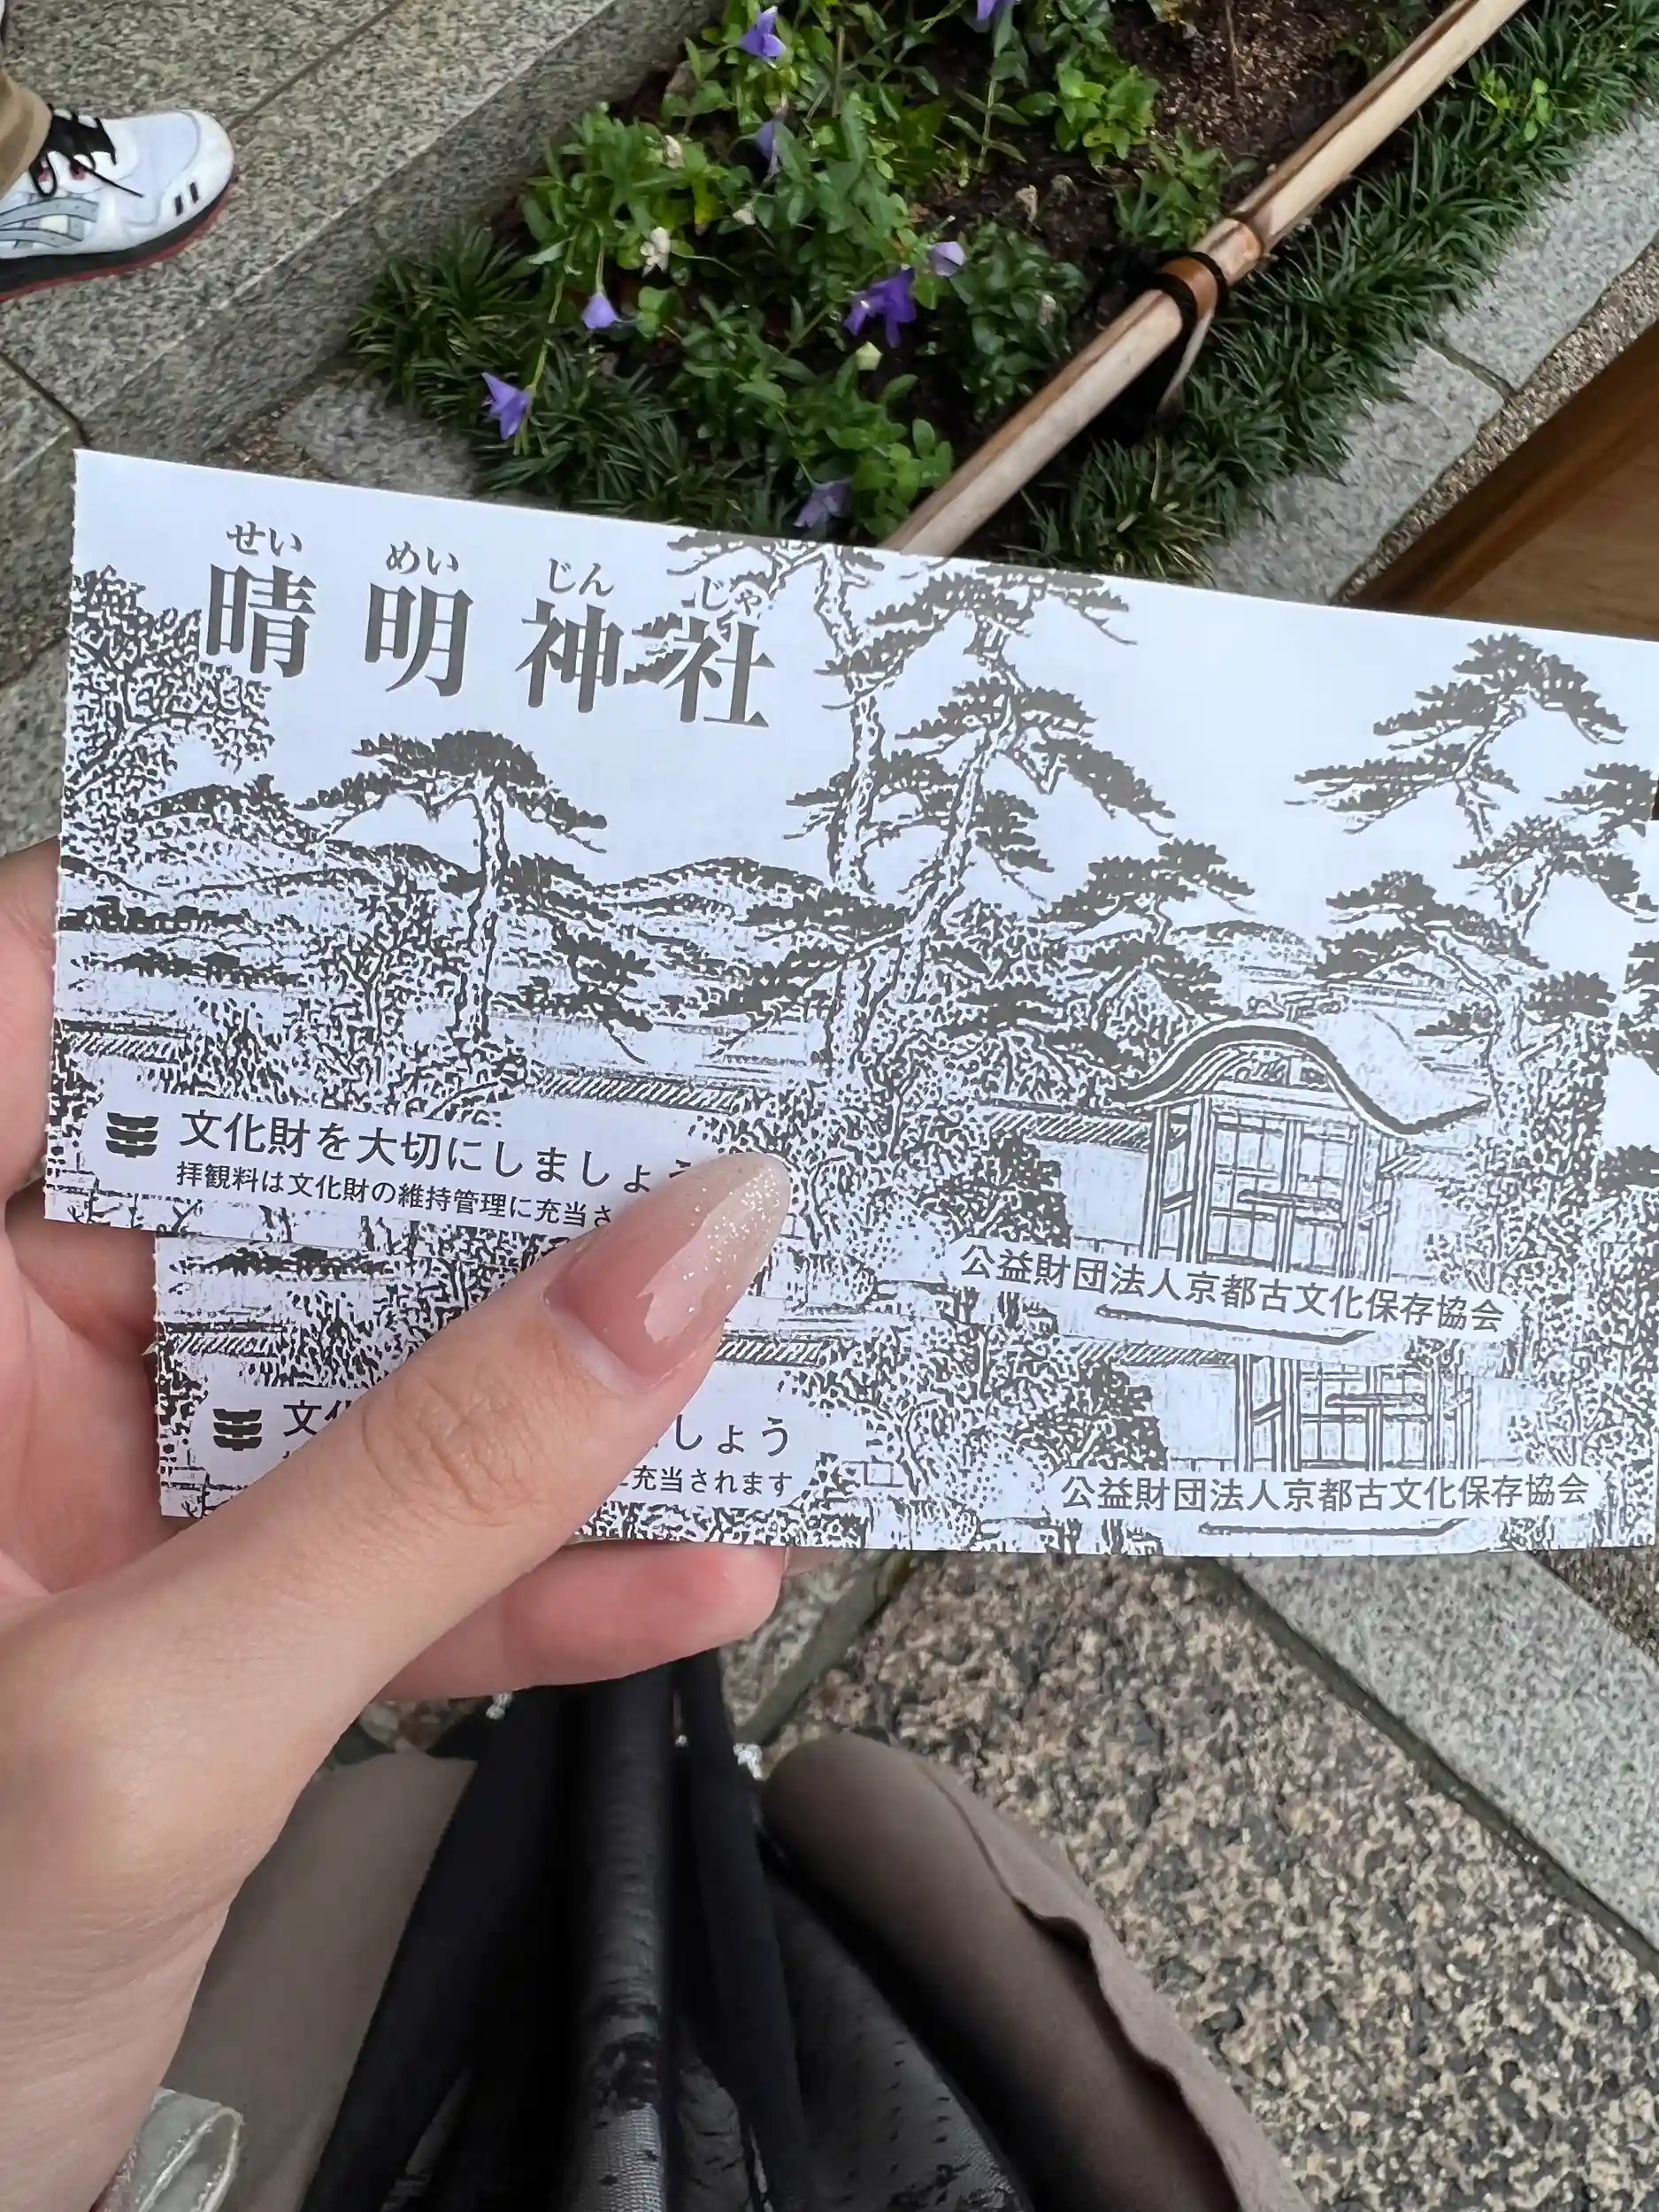 せい めい じん じゃ
晴明神社
文化財を大切にしましょう
拝観料は文化財の維持管理に充当さ
公益財団法人京都古文化保存協会
文化
しょう
充当されます
公益財団法人京都古文化保存協会